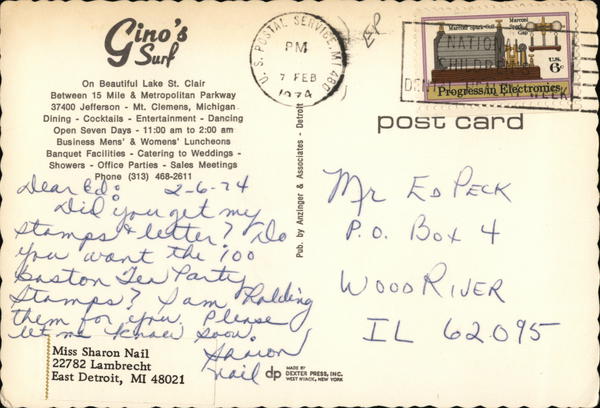 Gino's
Surf
On Beautiful Lake St. Clair
Between 15 Mile & Metropolitan Parkway
37400 Jefferson - Mt. Clemens, Michigan
Dining - Cocktails - Entertainment - Dancing
Open Seven Days - 11:00 am to 2:00 am
Business Mens' & Womens' Luncheons
Banquet Facilities - Catering to Weddings -
Showers - Office Parties - Sales Meetings
Phone (313) 468-2611
Dear Ed: 2-6-74
Did you get my
stamps & letter? Do
you want the 100
Boston Tea Party
Stamps? I am holding
them for you. Please
let me know soon.
Sharon
Nail
Miss Sharon Nail
22782 Lambrecht
East Detroit, MI 48021
Pub. by Anzinger & Associates - Detroit
dp
MADE BY
DEXTER PRESS, INC.
WEST NYACK, NEW YORK
EP
U.S. POSTAL SERVICE, MI 480
PM
7 FEB
1974
NATIONAL
CHILDREN'S
WEEK
Marconi Spark Coil
Marconi
Spark
Gap
U.S.
6c
Progress in Electronics
post card
Mr Ed Peck
P.O. Box 4
Wood River
IL 62095